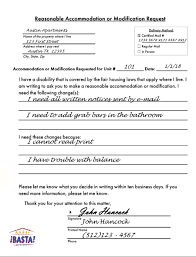 Reasonable Accommodation or Modification Request
Austin Apartments
Name of the property where I live
123 First Street
Address where you rent
Austin TX 12345
City, State, Zip
Delivery Method:
Certified Mail #
Regular Mail
In Person
Accommodation or Modification Requested for Unit # 101
1/1/18
Date
I have a disability that is covered by the fair housing laws that apply where I live. I
am writing to ask you for a reasonable accommodation or modification. I
need the following change(s):
I need all written notices sent by e-mail
I need to add grab bars in the bathroom
I need these changes because:
I cannot read print
I have trouble with balance
Please let me know what you decide in writing within ten business days. If you
need more information, please contact me.
Thank you for your attention to this matter,
John Hancock
Signature
John Hancock
Printed Name
(512)123-4567
Phone Number
¡BASTA!